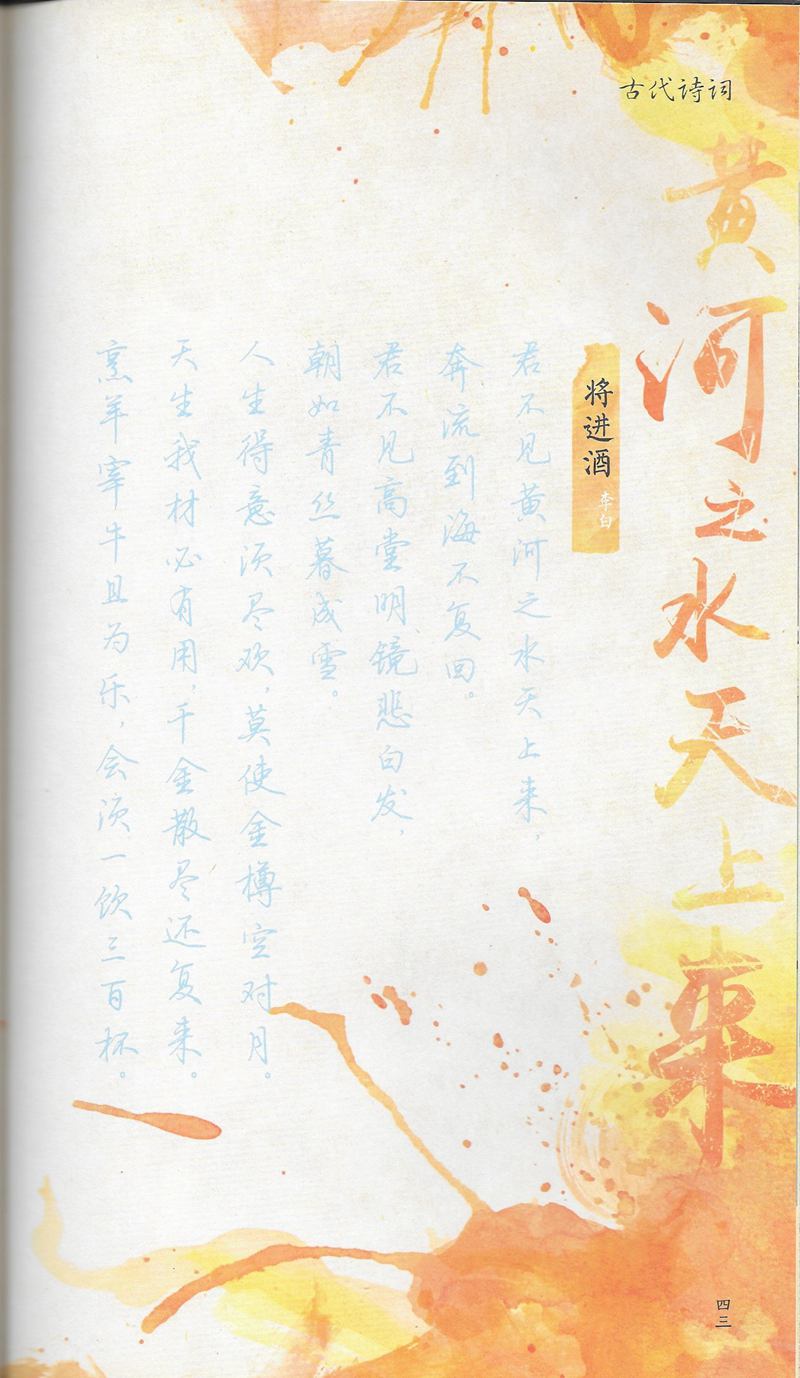 古代诗词
黄河之水天上来
将进酒
李白
君不见黄河之水天上来，
奔流到海不复回。
君不见高堂明镜悲白发，
朝如青丝暮成雪。
人生得意须尽欢，莫使金樽空对月。
天生我材必有用，千金散尽还复来。
烹羊宰牛且为乐，会须一饮三百杯。
四三